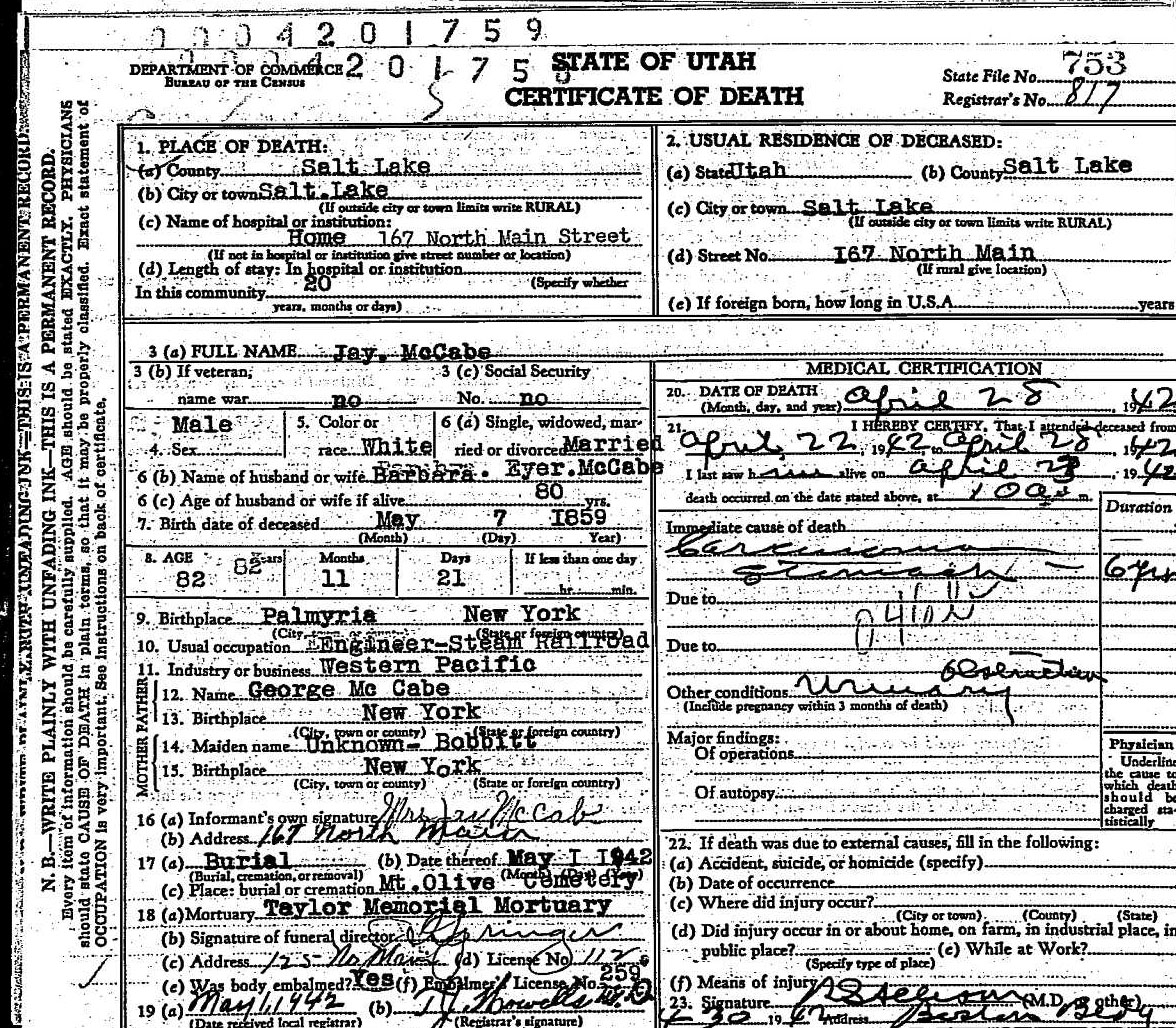 0004201759
STATE OF UTAH
CERTIFICATE OF DEATH
DEPARTMENT OF COMMERCE
BUREAU OF THE CENSUS
State File No. 753
Registrar's No. 817
N. B.—WRITE PLAINLY WITH UNFADING INK—THIS IS A PERMANENT RECORD.
Every item of information should be carefully supplied. AGE should be stated EXACTLY. PHYSICIANS
should state CAUSE OF DEATH in plain terms, so that it may be properly classified. Exact statement of
OCCUPATION is very important. See instructions on back of certificate.
1. PLACE OF DEATH:
(a) County Salt Lake
(b) City or town Salt Lake
(If outside city or town limits write RURAL)
(c) Name of hospital or institution:
Home 167 North Main Street
(If not in hospital or institution give street number or location)
(d) Length of stay: In hospital or institution
(Specify whether
In this community 20
years, months or days)
2. USUAL RESIDENCE OF DECEASED:
(a) State Utah (b) County Salt Lake
(c) City or town Salt Lake
(If outside city or town limits write RURAL)
(d) Street No. I67 North Main
(If rural give location)
(e) If foreign born, how long in U.S.A. years
3 (a) FULL NAME Jay. McCabe
3 (b) If veteran, name war no
3 (c) Social Security No. no
4. Sex Male
5. Color or race White
6 (a) Single, widowed, married or divorced Married
6 (b) Name of husband or wife Barbara. Eyer.McCabe
6 (c) Age of husband or wife if alive 80 yrs.
7. Birth date of deceased May 7 I859
(Month) (Day) Year)
8. AGE Years Months Days If less than one day
82 82 11 21 hr. min.
9. Birthplace Palmyria New York
(City, town or county) (State or foreign country)
10. Usual occupation Engineer-Steam Railroad
11. Industry or business Western Pacific
FATHER
12. Name George Mc Cabe
13. Birthplace New York
(City, town or county) (State or foreign country)
MOTHER
14. Maiden name Unknown- Bobbitt
15. Birthplace New York
(City, town or county) (State or foreign country)
16 (a) Informant's own signature Mrs Jay McCabe
(b) Address 167 North Main
17 (a) Burial (b) Date thereof May I I942
(Burial, cremation, or removal) (Month) (Day) (Year)
(c) Place: burial or cremation Mt.Olive Cemetery
18 (a) Mortuary Taylor Memorial Mortuary
(b) Signature of funeral director
(c) Address 125 No Main (d) License No. 112
(e) Was body embalmed? Yes (f) Embalmer's License No. 259
19 (a) May 1, 1942 (b)
(Date received local registrar) (Registrar's signature)
MEDICAL CERTIFICATION
20. DATE OF DEATH
(Month, day, and year) April 28, 1942
21. I HEREBY CERTIFY, That I attended deceased from
April 22, 1942 to April 28, 1942
I last saw h im alive on April 28, 1942
death occurred on the date stated above, at 10 a. m.
Duration
Immediate cause of death
Carcinoma
Stomach 6 yrs
Due to
Due to
Other conditions Urinary obstruction
(Include pregnancy within 3 months of death)
Major findings:
Of operations
Of autopsy
Physician
Underline
the cause to
which death
should be
charged sta-
tistically
22. If death was due to external causes, fill in the following:
(a) Accident, suicide, or homicide (specify)
(b) Date of occurrence
(c) Where did injury occur?
(City or town) (County) (State)
(d) Did injury occur in or about home, on farm, in industrial place, in
public place? (e) While at Work?
(Specify type of place)
(f) Means of injury
23. Signature (M.D. or other)
4-30 1942 Address Boston Bldg